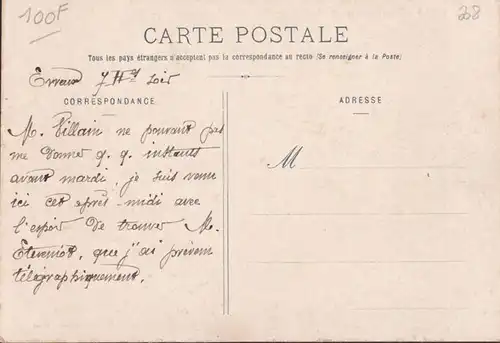 100F
28
CARTE POSTALE
Tous les pays étrangers n'acceptent pas la correspondance au recto (Se renseigner à la Poste)
7 soir
CORRESPONDANCE
ADRESSE
M. Villain ne pouvant pas
me donner q. q. instants
avant mardi, je suis venu
ici cet après-midi avec
l'espoir de trouver M.
que j'ai prévenu
télégraphiquement.
M